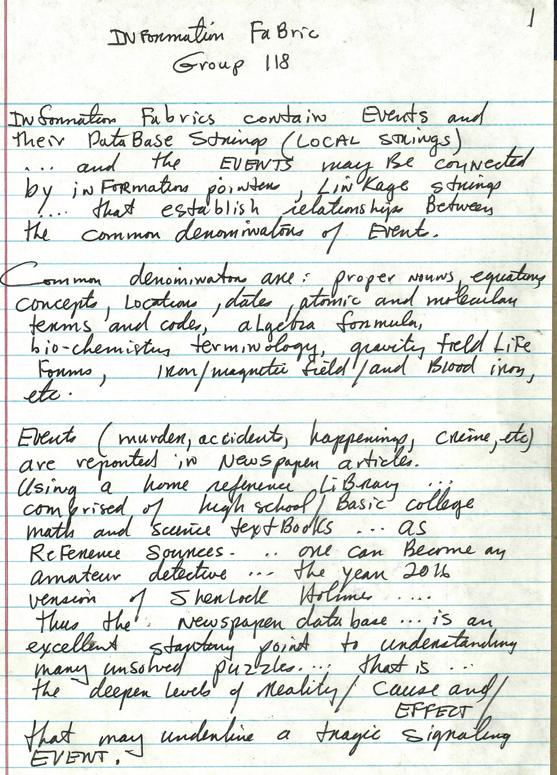 1
INFormation FaBric
Group 118
INformation Fabrics contain Events and
their DataBase Strings (LOCAL STRINGS)
.... and the EVENTS may Be connected
by inFormation pointers, LinKage strings
.... that establish relationships Between
the common denominators of Event.
Common denominators are: proper nouns, equations
concepts, Locations, dates, atomic and molecular
terms and codes, aLgebra formula,
bio-chemistry terminology, gravity field LiFe
Forms, Iron/magnetic field/and Blood iron,
etc.
Events (murder, accidents, happenings, crime, etc)
are reported in Newspaper articles.
Using a home reference LiBrary ...
comprised of high school/Basic college
math and science textBooks ... as
ReFerence Sources. .. one can Become an
amateur detective ... the year 2016
version of SherLock Holmes ....
Thus the Newspaper data base ... is an
excellent starting point to understanding
many unsolved puzzles.... that is ...
the deeper levels of reality/ Cause and/
EFFECT/
that may underline a tragic signaling
EVENT.